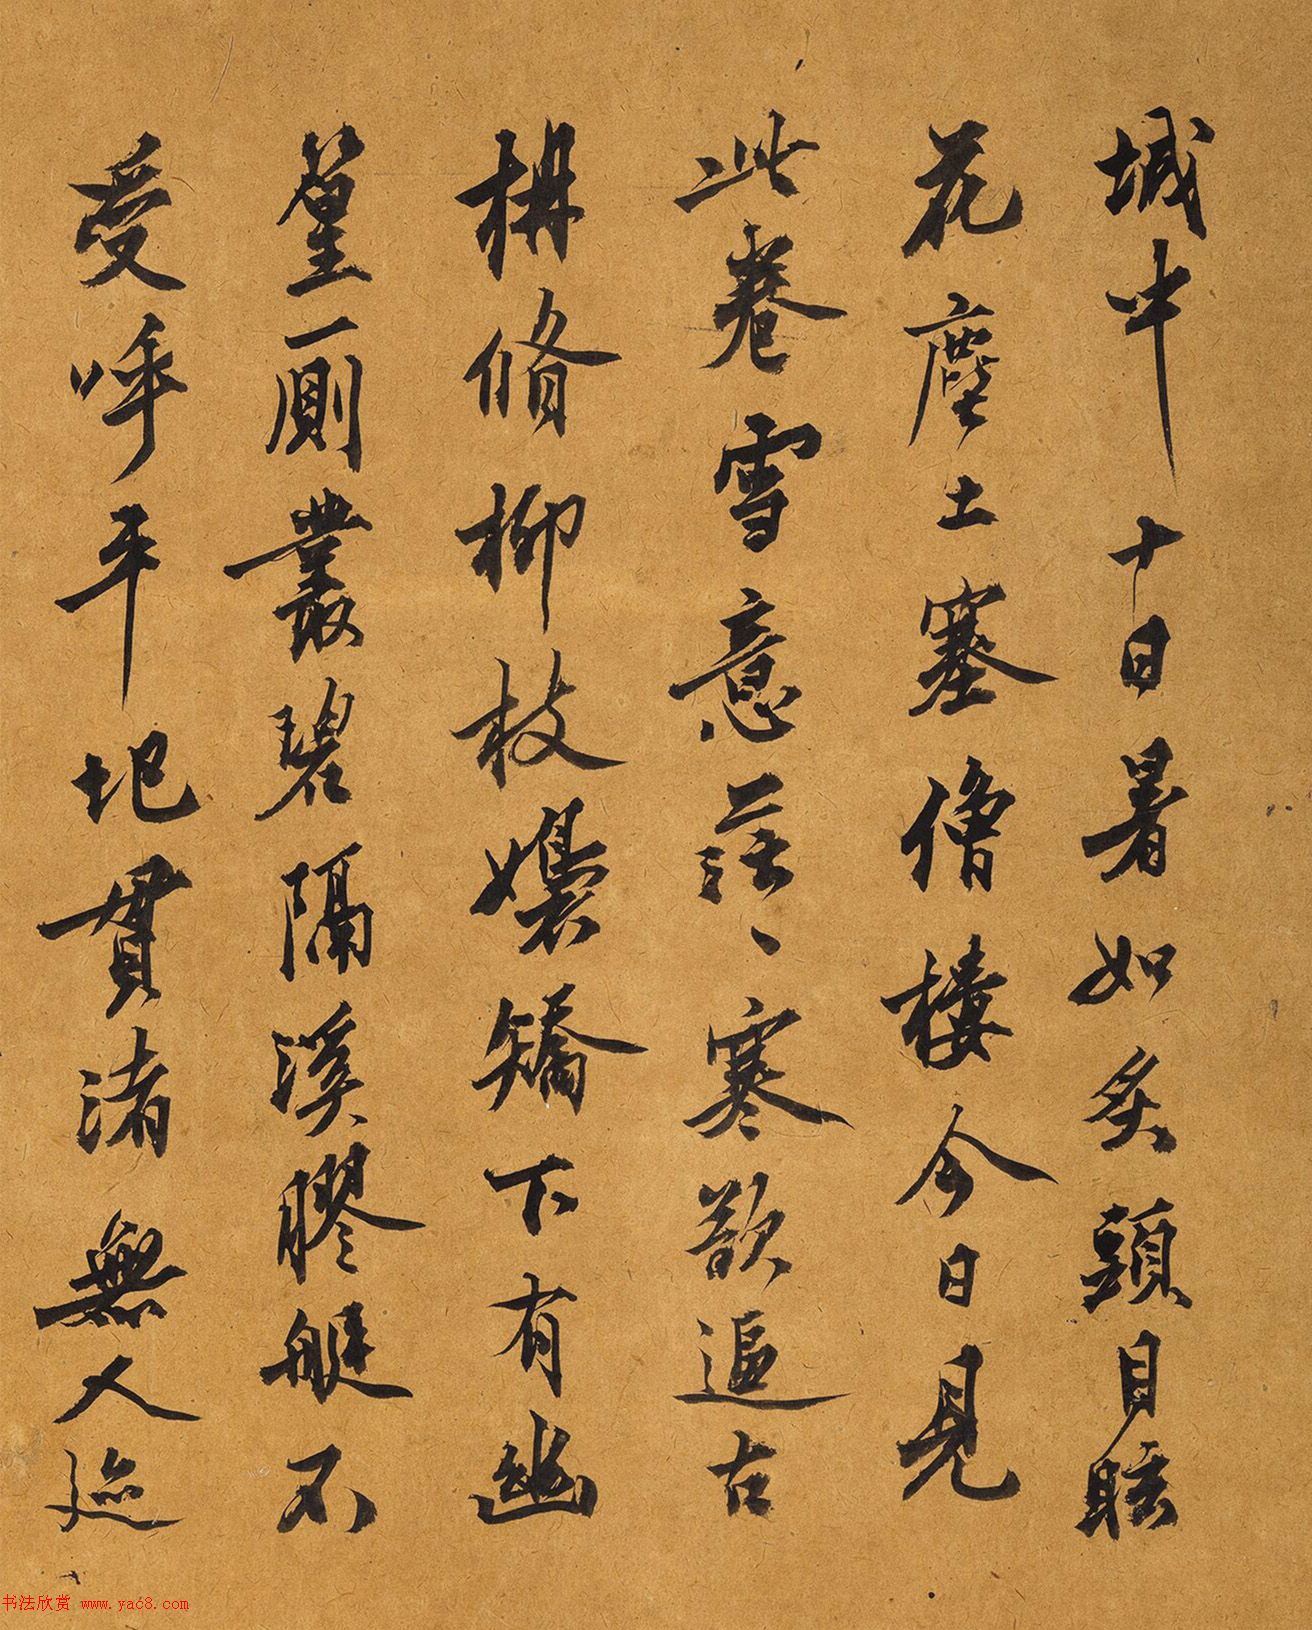 城中十日暑如炙頭目眩
花塵土塞僧樓今日見
此卷雪意茫、寒欲逼古
枏脩柳枝嬝矯下有幽
篁一厠叢碧隔溪膠艇不
受呼平地貫渚無人迹
书法欣赏 www.yac8.com